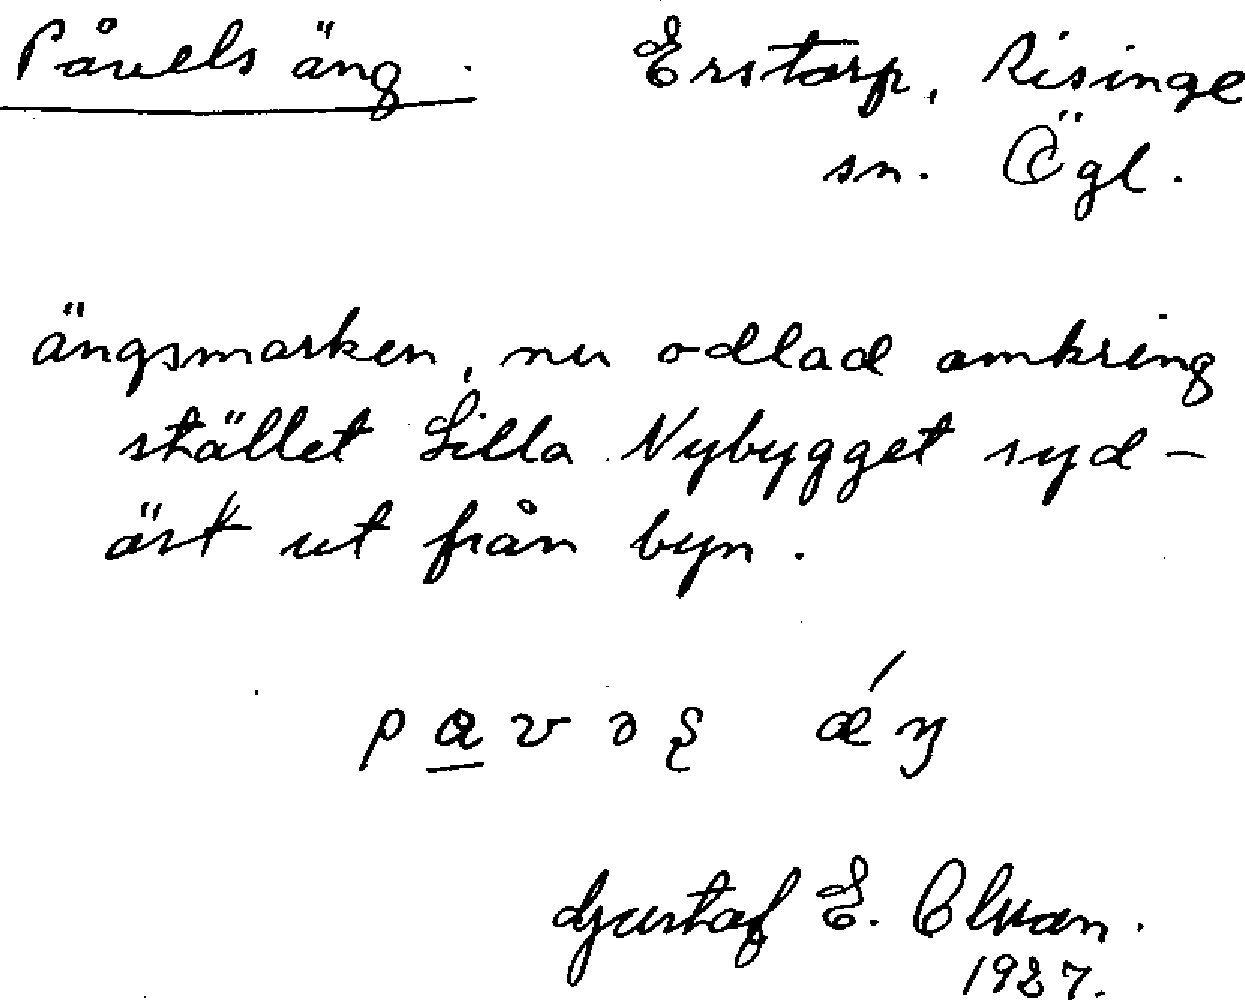 Påvels äng. Erstorp, Risinge
sn. Ögl.
ängsmarken, nu odlad omkring
stället Lilla Nybygget syd-
öst ut från byn.
pavəʂ ǽŋ
Gustaf E. Olsson.
1927.